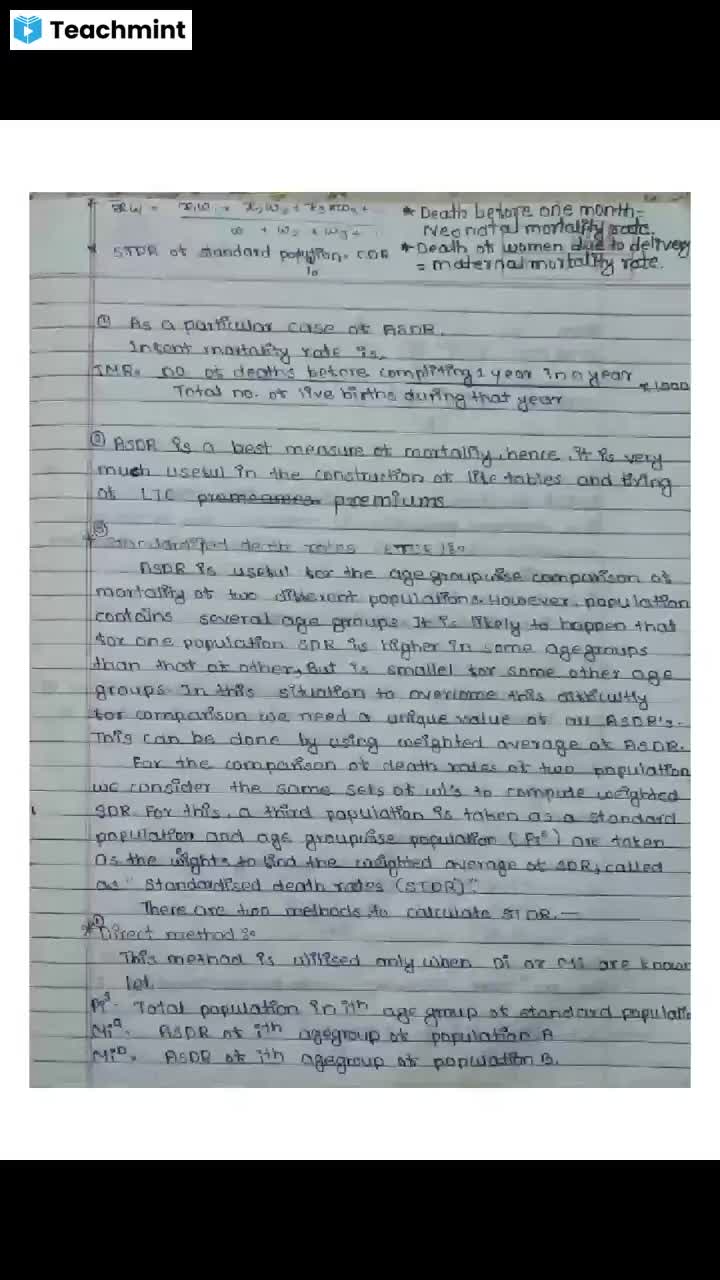 Teachmint
x̄w = x₁w₁ + x₂w₂ + x₃w₃ + ..
w + w₂ + w₃ +
* Death before one month =
Neonatal mortality rate.
* STDR of standard population = CDR
* Death of women due to delivery
= maternal mortality rate.
① As a particular case of ASDR.
Infent mortality rate is,
IMR = no of deaths before compliting 1 year in a year × 1000
Total no. of live births during that year
② ASDR is a best measure of mortality, hence, it is very
much useful in the construction of life tables and fixing
of LIC premiums
③
Standardised death rates (STDR) :-
ASDR is useful for the agegroupwise comparison of
mortality of two different populations. However, population
contains several age groups. It is likely to happen that
for one population SDR is higher in some agegroups
than that of other, But is smallel for some other age
groups. In this situation to overcome this difficultly
for comparison we need a unique value of all ASDR's.
This can be done by using weighted average of ASDR.
For the comparison of death rates of two population
we consider the same sets of wi's to compute weighted
SDR. For this, a third population is taken as a standard
population and age groupwise population (Piˢ) are taken
as the wights to find the weighted average of SDR, called
as "Standardised death rates (STDR)".
There are two methods to calculate STDR. —
* ① Direct method :-
This method is utilised only when Di or Mi are known
let,
Piˢ = Total population in ith age group of standard populatio
Miᵃ = ASDR of ith agegroup of population A
Miᵇ = ASDR of ith agegroup of population B.